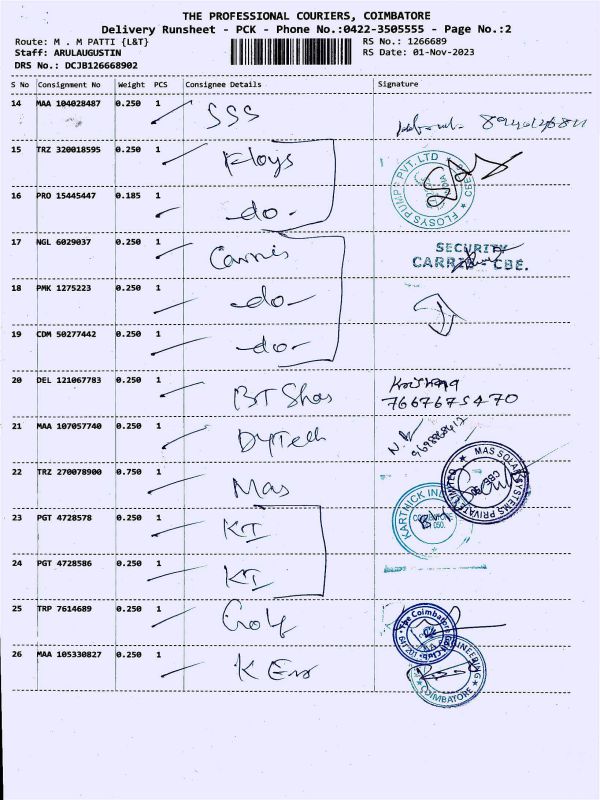 THE PROFESSIONAL COURIERS, COIMBATORE
Delivery Runsheet - PCK - Phone No.:0422-3505555 - Page No.:2
Route: M . M PATTI {L&T}
RS No.: 1266689
Staff: ARULAUGUSTIN
RS Date: 01-Nov-2023
DRS No.: DCJB126668902
S No Consignment No Weight PCS Consignee Details Signature
14 MAA 104028487 0.250 1 SSS
15 TRZ 320018595 0.250 1 Floys
FLOSYS PUMPS PVT. LTD
16 PRO 15445447 0.185 1 -do-
17 NGL 6029037 0.250 1 Carris
SECURITY
CBE.
18 PMK 1275223 0.250 1 -do-
19 CDM 50277442 0.250 1 -do-
20 DEL 121067783 0.250 1 BT Shas
7667675470
21 MAA 107057740 0.250 1 DyTech
22 TRZ 270078900 0.750 1 Mas
MAS SOLAR SYSTEMS PRIVATE LIMITED
23 PGT 4728578 0.250 1 KT
24 PGT 4728586 0.250 1 KT
25 TRP 7614689 0.250 1 Golf
The Coimbatore
26 MAA 105330827 0.250 1 K Ens
COIMBATORE